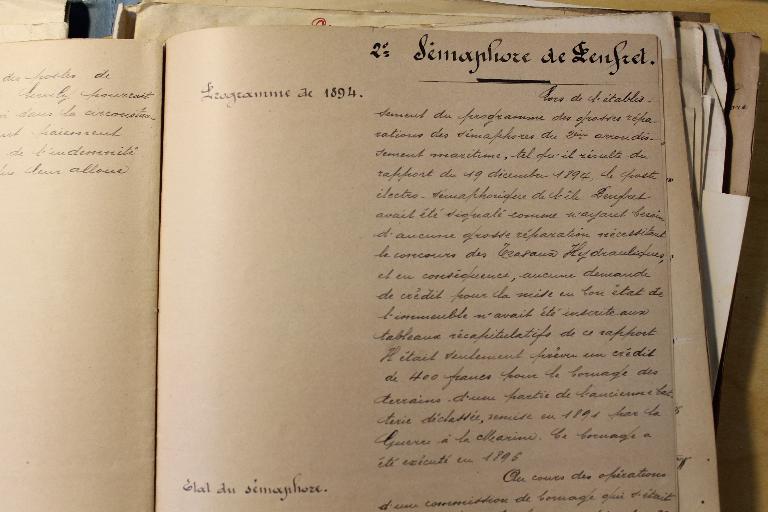 des postes de
dans la circonstan-
paiement
de l'indemnité
leur alloue
2e Sémaphore de Penfret.
Programme de 1894.
Lors de l'établis-
sement du programme des grosses répa-
rations des sémaphores du 2ème arrondis-
sement maritime, tel qu'il résulte du
rapport du 19 décembre 1894, le poste
électro-sémaphorique de l'île Penfret
avait été signalé comme n'ayant besoin
d'aucune grosse réparation nécessitant
le concours des Travaux Hydrauliques,
et en conséquence, aucune demande
de crédit pour la mise en bon état de
l'immeuble n'avait été inscrite aux
tableaux récapitulatifs de ce rapport
Il était seulement prévu un crédit
de 400 francs pour le bornage des
terrains d'une partie de l'ancienne bat-
terie déclassée, remise en 1891 par la
Guerre à la Marine. Ce bornage a
été exécuté en 1895
Etat du sémaphore.
Au cours des opérations
d'une commission de bornage qui s'était